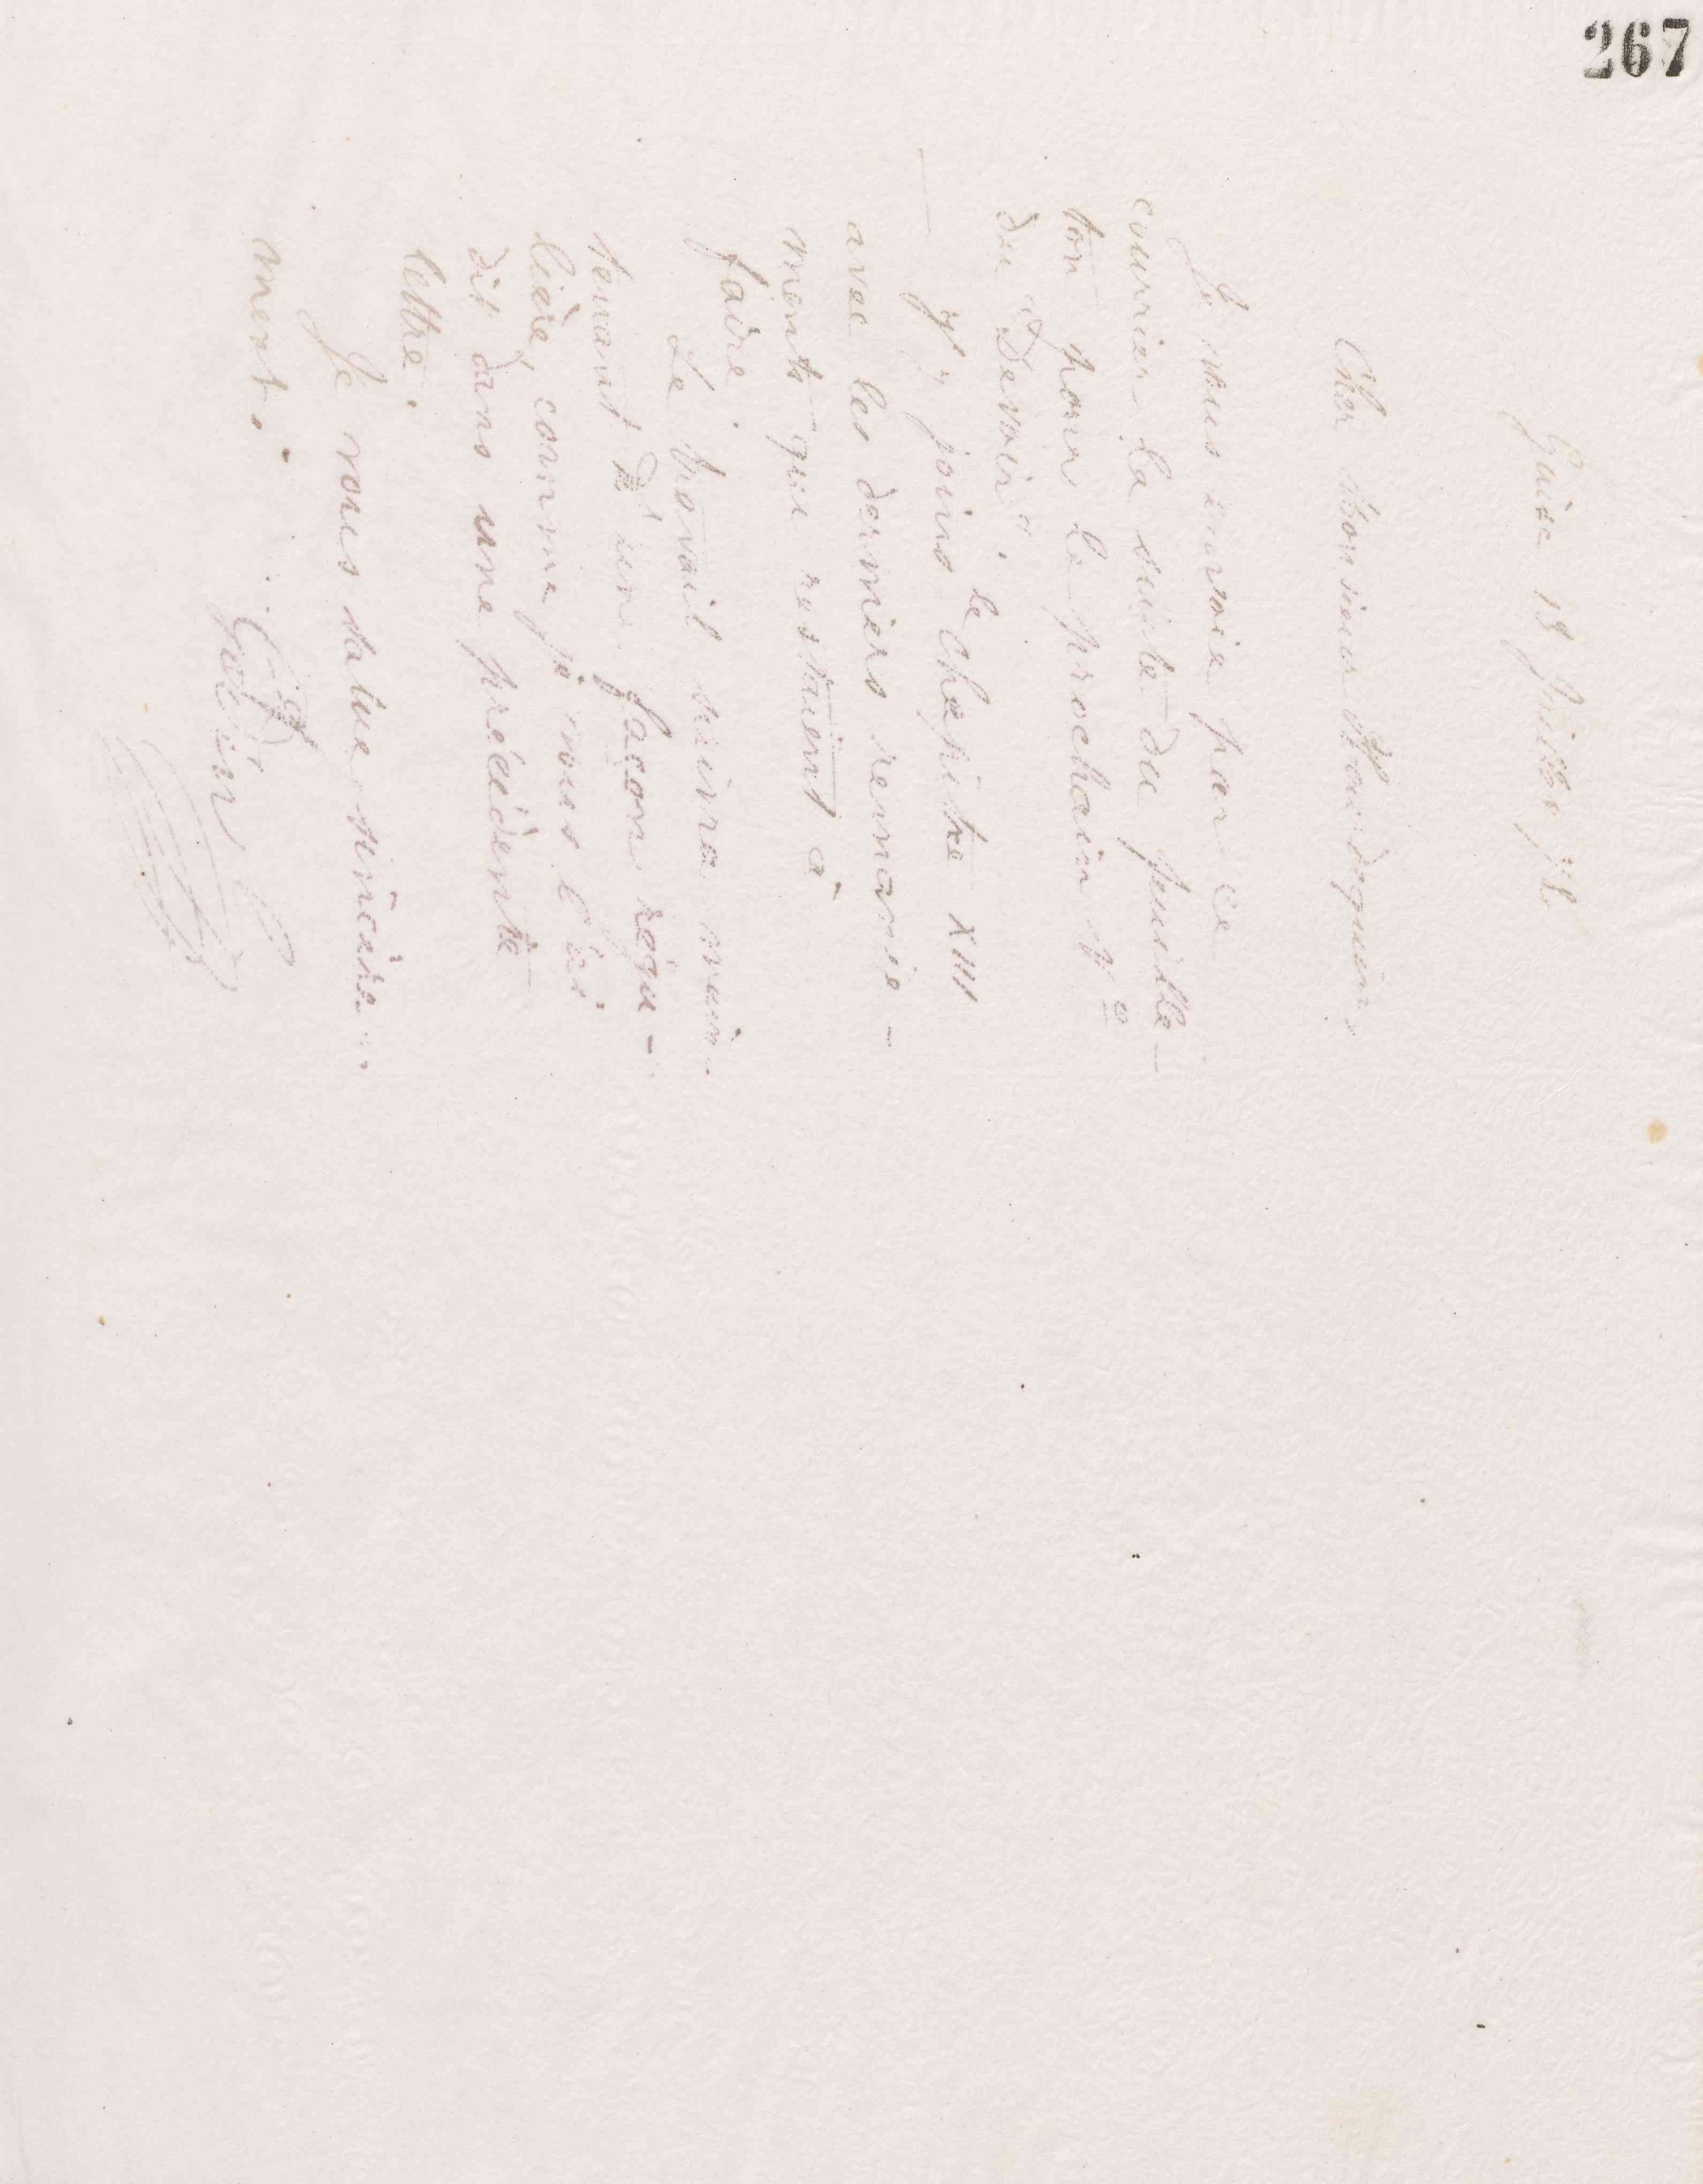 267
Guise 18 Juillet 78
Cher Monsieur
Je vous envoie par ce
courrier la suite du feuille-
ton pour le prochain N°
du "Devoir".
J'y joins le chapitre XIII
avec les derniers remanie-
ments qui restaient à
faire.
Le travail suivra main-
tenant d'une façon régu-
lière, comme je vous l'ai
dit dans une précédente
lettre.
Je vous salue sincère-
ment.
Godin